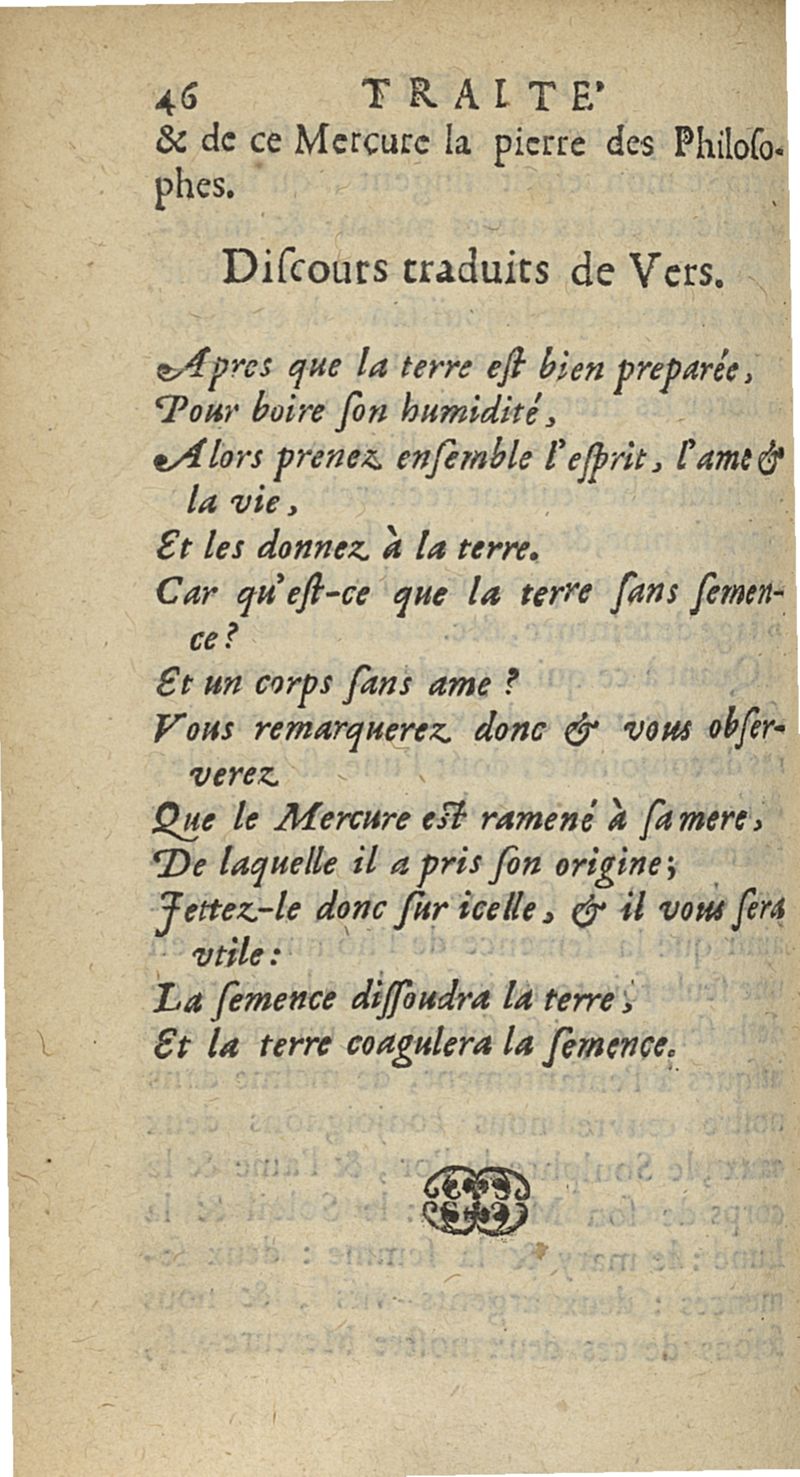 46 TRAITE'
& de ce Mercure la pierre des Philoſo-
phes.
Diſcours traduits de Vers.
Apres que la terre eſt bien preparée,
Pour boire ſon humidité,
Alors prenez enſemble l'eſprit, l'ame &
la vie,
Et les donnez à la terre.
Car qu'eſt-ce que la terre ſans ſemen-
ce?
Et un corps ſans ame?
Vous remarquerez donc & vous obſer-
verez
Que le Mercure eſt ramené à ſa mere,
De laquelle il a pris ſon origine;
Jettez-le donc ſur icelle, & il vous ſera
vtile:
La ſemence diſſoudra la terre,
Et la terre coagulera la ſemence.